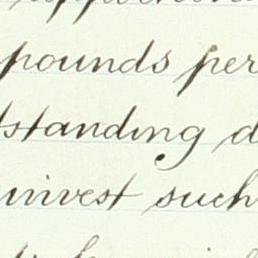 pounds per
tstanding d
invest such